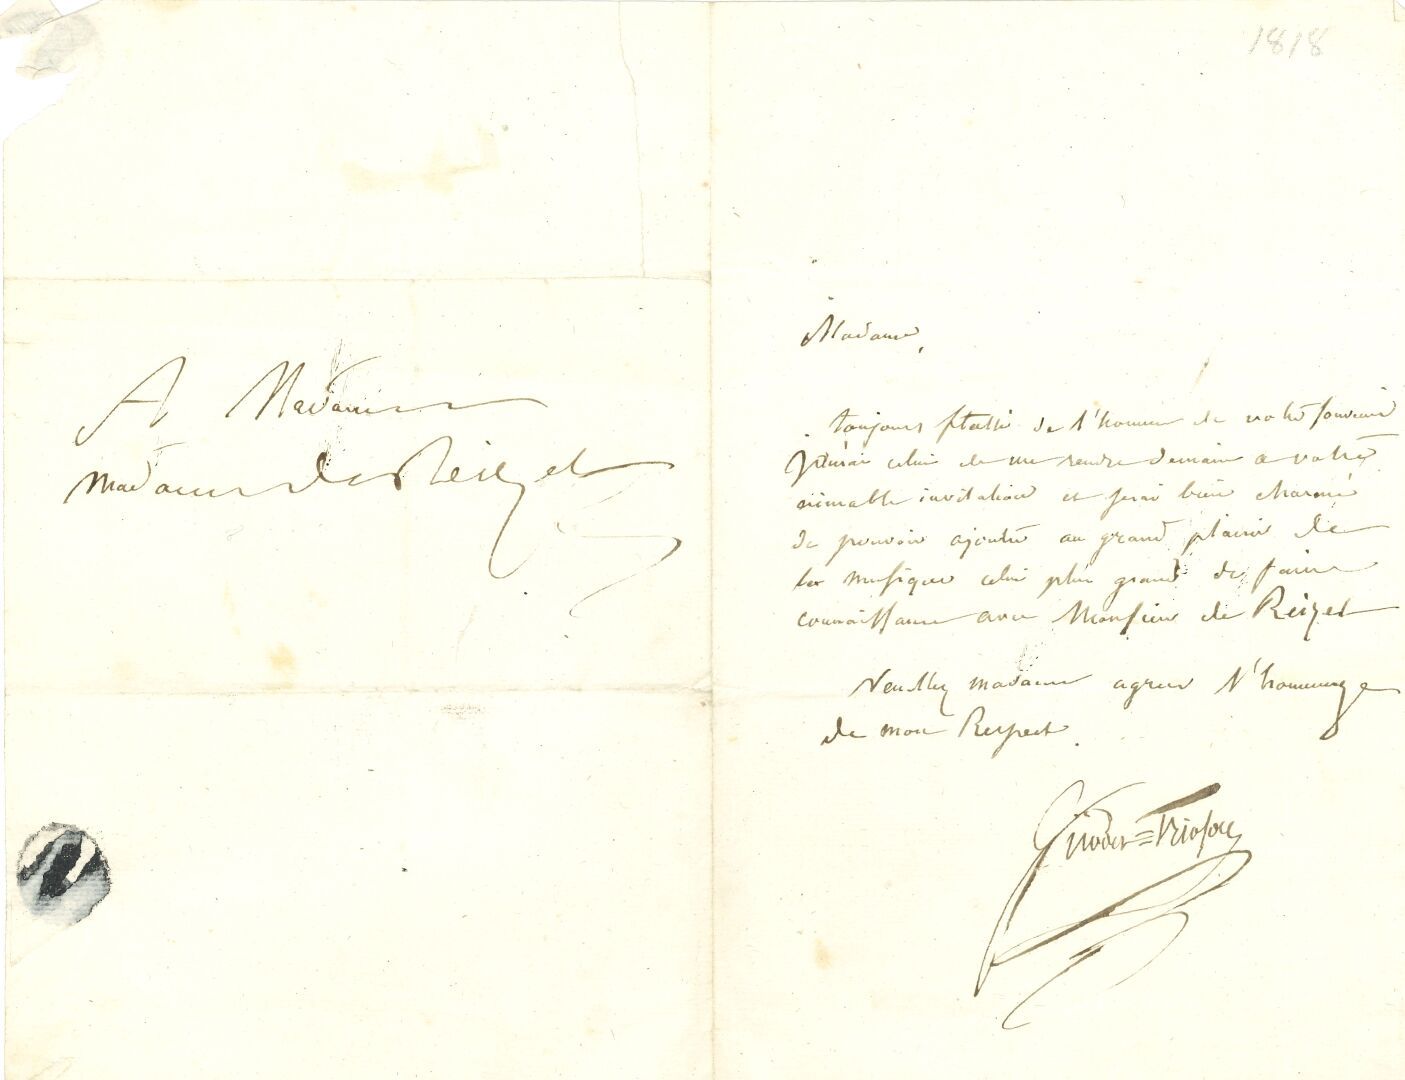 1818
A Madame
Madame de Reizet
Madame,
toujours flatté de l'honneur de votre souvenir
j'aurai celui de me rendre demain a votre
aimable invitation et serai bien charmé
de pouvoir ajouter au grand plaisir de
la musique celui plus grand de faire
connaissance avec Monsieur de Reizet
Veuillez madame agreer l'hommage
de mon Respect.
Girodet=Trioson